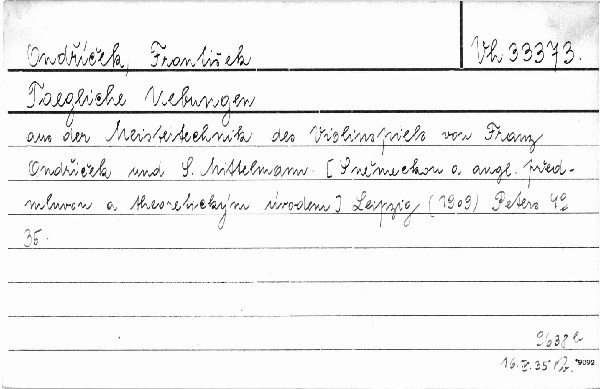 Ondříček, František
Vh 33373.
Taegliche Uebungen
aus der Meistertechnik des Violinspiels von Franz
Ondříček und S. Mittelmann. [S německou a angl. před-
mluvou a theoretickým úvodem] Leipzig (1909) Peters 4°
35.
9638
16. V. 35 *9092